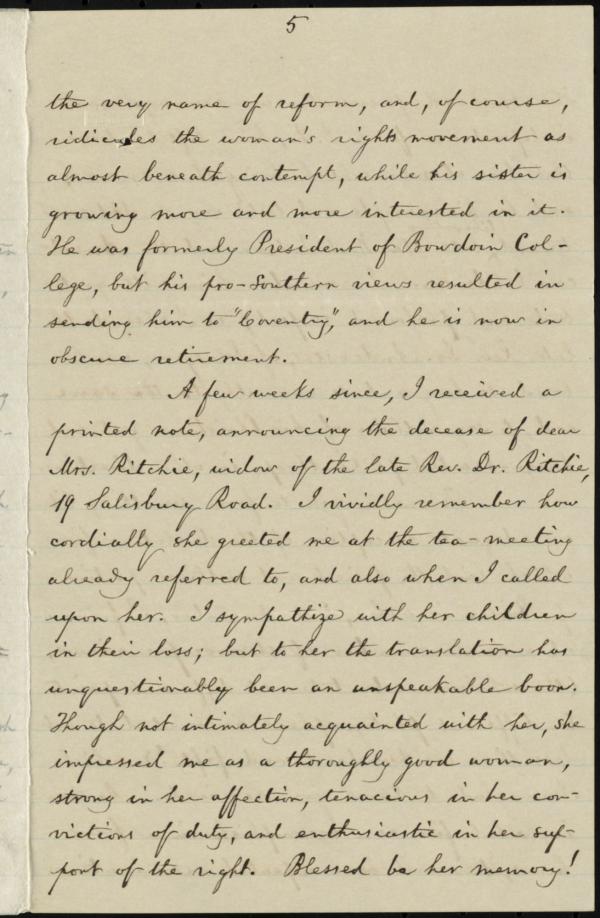 5
the very name of reform, and, of course,
ridicules the woman's rights movement as
almost beneath contempt, while his sister is
growing more and more interested in it.
He was formerly President of Bowdoin Col-
lege, but his pro-Southern views resulted in
sending him to "Coventry", and he is now in
obscure retirement.
A few weeks since, I received a
printed note, announcing the decease of dear
Mrs. Ritchie, widow of the late Rev. Dr. Ritchie,
19 Salisbury Road. I vividly remember how
cordially she greeted me at the tea-meeting
already referred to, and also when I called
upon her. I sympathize with her children
in their loss; but to her the translation has
unquestionably been an unspeakable boon.
Though not intimately acquainted with her, she
impressed me as a thoroughly good woman,
strong in her affection, tenacious in her con-
victions of duty, and enthusiastic in her sup-
port of the right. Blessed be her memory!